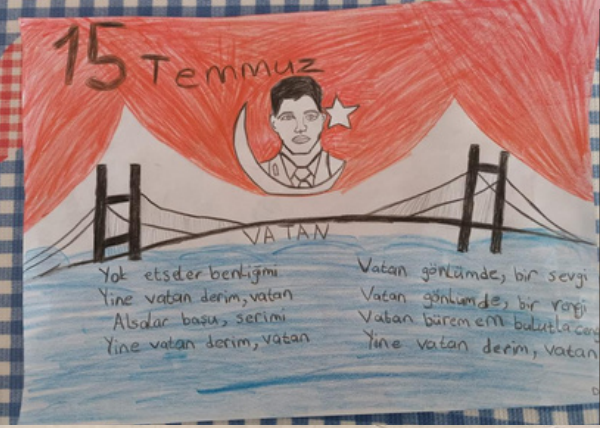 15 Temmuz
VATAN
Yok etseler benliğimi
Yine vatan derim, vatan
Alsalar başı, serimi
Yine vatan derim, vatan
Vatan gönlümde, bir sevgi
Vatan gönlümde, bir rengi
Vatan bürem em bulutla ceng
Yine vatan derim, vatan